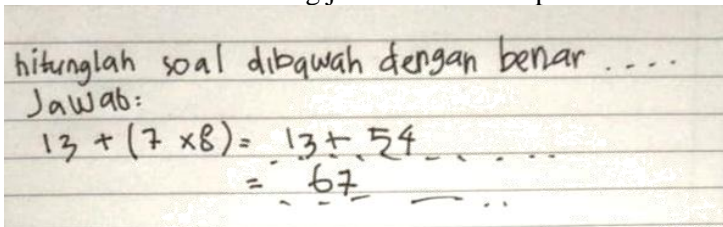 hitunglah soal dibawah dengan benar ....
Jawab:
13 + (7 x 8) = 13 + 54
= 67